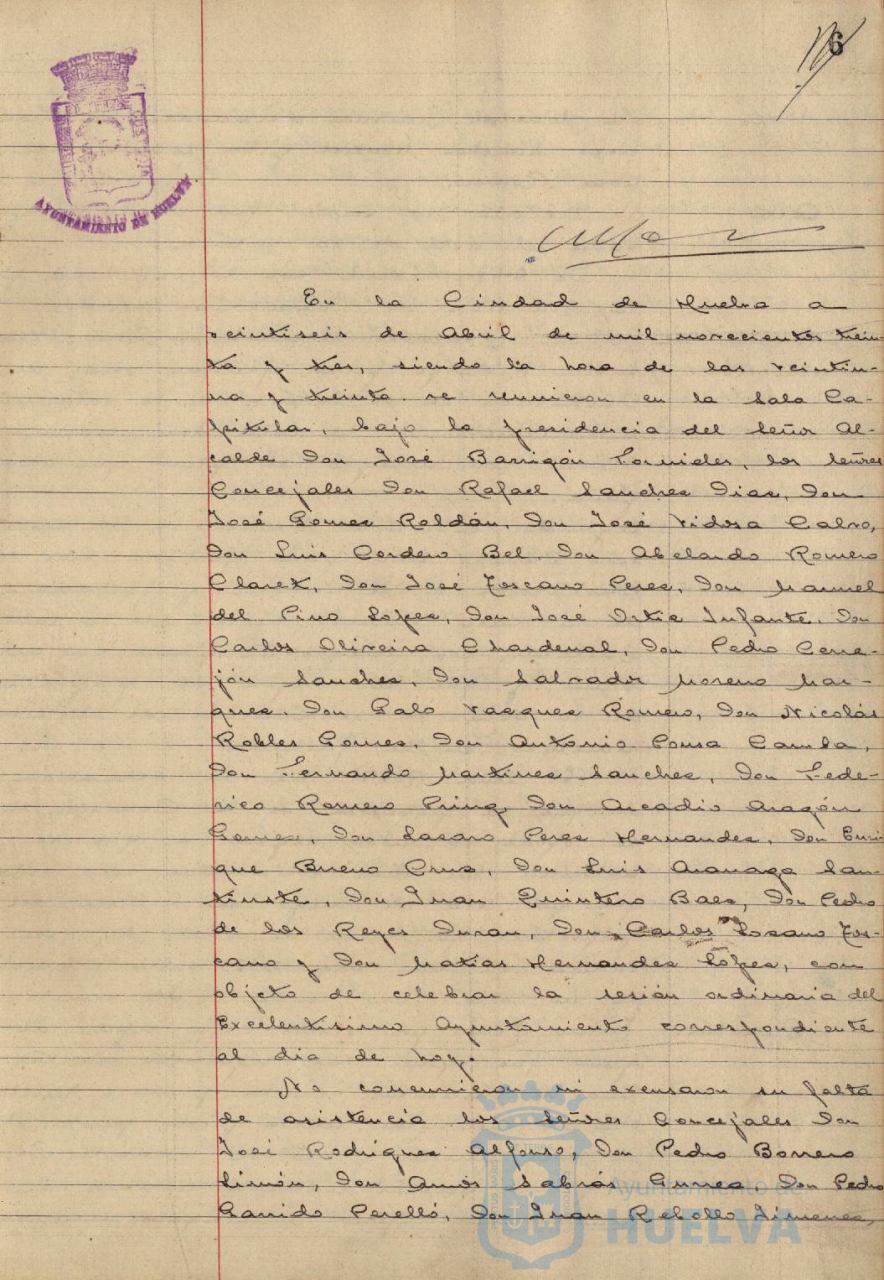 6
AYUNTAMIENTO DE HUELVA
En la Ciudad de Huelva a
veintiseis de Abril de mil novecientos trein-
ta y tres, siendo la hora de las veintiu-
na y treinta se reunieron en la Sala Ca-
pitular, bajo la presidencia del Señor Al-
calde Don José Barrigón Fornieles, los Señores
Concejales Don Rafael Sanches Dias, Don
José Gomes Roldán, Don José Vidosa Calvo,
Don Luis Cordero Bel, Don Abelardo Romero
Claret, Don José Toscano Peres, Don Manuel
del Pino Lopes, Don José Ortis Infante, Don
Carlos Oliveira Chardenal, Don Pedro Cerre-
jón Sanches, Don Salvador Moreno Mar-
ques, Don Galo Vasques Romero, Don Nicolás
Robles Gomes, Don Antonio Ponsa Camba,
Don Fernando Martines Sanches, Don Fede-
rico Romero Pring, Don Arcadio Aragón
Gomes, Don Lasaro Peres Hernandes, Don Enri-
que Bueno Crus, Don Luis Aramaga San-
tinste, Don Juan Quintero Baes, Don Pedro
de los Reyes Duran, Don Carlos Losano Tos-
cano y Don Matias Hernandes Lópes, con
objeto de celebrar la sesión ordinaria del
Excelentisimo Ayuntamiento correspondiente
al dia de hoy.
No comunicaron ni excusaron su falta
de asistencia los Señores Concejales Don
José Rodrigues Alfonso, Don Pedro Borrero
Limón, Don Amós Sabrás Gurrea, Don Pedro
Garrido Perelló, Don Juan Rebollo Jimenes,
Ayuntamiento de
HUELVA